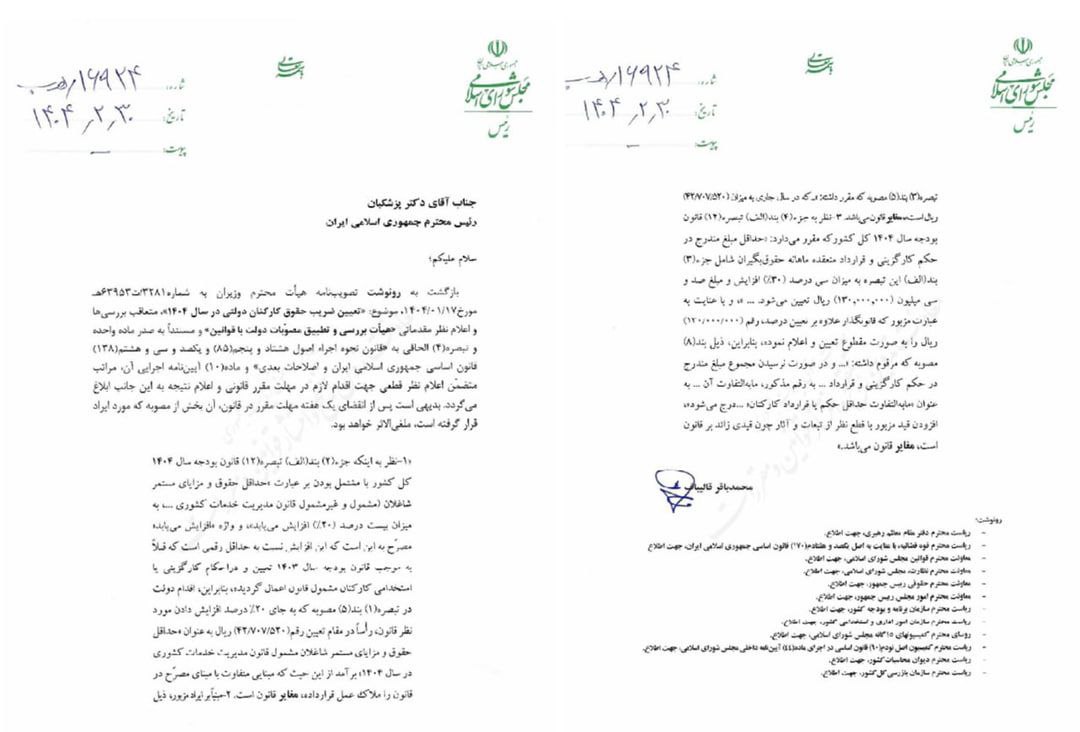 جمهوری اسلامی ایران
مجلس شورای اسلامی
رئیس
بسمه تعالی
شماره: ۱۶۹۲۴/هـ ب
تاریخ: ۱۴۰۴٫۲٫۳۰
پیوست: ــ
جناب آقای دکتر پزشکیان
رئیس محترم جمهوری اسلامی ایران
سلام علیکم؛
بازگشت به رونوشت تصویب‌نامه هیأت محترم وزیران به شماره۳۲۸۱/ت۶۳۹۵۳هـ
مورخ۱۴۰۴/۰۱/۱۷، موضوع: «تعیین ضریب حقوق کارکنان دولتی در سال ۱۴۰۴»، متعاقب بررسی‌ها
و اعلام نظر مقدماتی «هیأت بررسی و تطبیق مصوّبات دولت با قوانین» و مستنداً به صدر ماده واحده
و تبصره(۴) الحاقی به «قانون نحوه اجراء اصول هشتاد و پنجم(۸۵) و یکصد و سی و هشتم(۱۳۸)
قانون اساسی جمهوری اسلامی ایران و اصلاحات بعدی» و ماده(۱۰) آیین‌نامه اجرایی آن، مراتب
متضمّن اعلام نظر قطعی جهت اقدام لازم در مهلت مقرر قانونی و اعلام نتیجه به این جانب ابلاغ
می‌گردد. بدیهی است پس از انقضای یک هفته مهلت مقرر در قانون، آن بخش از مصوبه که مورد ایراد
قرار گرفته است، ملغی‌الاثر خواهد بود.
«۱-نظر به اینکه جزء(۲) بند(الف) تبصره(۱۲) قانون بودجه سال ۱۴۰۴
کل کشور با مشتمل بودن بر عبارت «حداقل حقوق و مزایای مستمر
شاغلان (مشمول و غیرمشمول قانون مدیریت خدمات کشوری ...، به
میزان بیست درصد (۲۰٪) افزایش می‌یابد»، و واژه «افزایش می‌یابد»
مصرّح به این است که این افزایش نسبت به حداقل رقمی است که قبلاً
به موجب قانون بودجه سال ۱۴۰۳ تعیین و دراحکام کارگزینی یا
استخدامی کارکنان مشمول قانون اعمال گردیده، بنابراین، اقدام دولت
در تبصره(۱) بند(۵) مصوبه که به جای ۲۰٪ درصد افزایش دادن مورد
نظر قانون، رأساً در مقام تعیین رقم(۴۲/۷۰۷/۵۲۰) ریال به عنوان «حداقل
حقوق و مزایای مستمر شاغلان مشمول قانون مدیریت خدمات کشوری
در سال ۱۴۰۴» برآمد از این حیث که مبنایی متفاوت با مبنای مصرّح در
قانون را ملاک عمل قرارداده، مغایر قانون است. ۲-مبنیاً بر ایراد مزبور، ذیل
جمهوری اسلامی ایران
مجلس شورای اسلامی
رئیس
بسمه تعالی
شماره: ۱۶۹۲۴/هـ ب
تاریخ: ۱۴۰۴٫۲٫۳۰
پیوست: ــ
تبصره(۳) بند(۵) مصوبه که مقرر داشته: «ـ که در سال جاری به میزان (۴۲/۷۰۷/۵۲۰)
ریال‌است»،مغایر قانون‌می‌باشد. ۳- نظر به جزء(۴) بند(الف) تبصره(۱۲) قانون
بودجه سال ۱۴۰۴ کل کشورکه مقرر می‌دارد: «حداقل مبلغ مندرج در
حکم کارگزینی و قرارداد منعقده ماهانه حقوق‌بگیران شامل جزء(۳)
بند(الف) این تبصره به میزان سی درصد (۳۰٪) افزایش و مبلغ صد و
سی میلیون (۱۳۰,۰۰۰,۰۰۰) ریال تعیین می‌شود. ... »، و با عنایت به
عبارت مزبور که قانونگذار علاوه بر تعیین درصد، رقم (۱۳۰/۰۰۰/۰۰۰)
ریال را به صورت مقطوع تعیین و اعلام نموده، بنابراین، ذیل بند(۸)
مصوبه که مرقوم داشته: «... و در صورت نرسیدن مجموع مبلغ مندرج
در حکم کارگزینی و قرارداد ... به رقم مذکور، مابه‌التفاوت آن ... به
عنوان «مابه‌التفاوت حداقل حکم یا قرارداد کارکنان» ...درج می‌شود»،
افزودن قید مزبور با قطع نظر از تبعات و آثار چون قیدی زائد بر قانون
است، مغایر قانون می‌باشد.»
محمدباقر قالیباف
رونوشت:
- ریاست محترم دفتر مقام معظم رهبری، جهت اطلاع.
- ریاست محترم قوه قضائیه، با عنایت به اصل یکصد و هفتادم(۱۷۰) قانون اساسی جمهوری اسلامی ایران، جهت اطلاع
- معاونت محترم قوانین مجلس شورای اسلامی، جهت اطلاع.
- معاونت محترم نظارت، مجلس شورای اسلامی، جهت اطلاع.
- معاونت محترم حقوقی رییس جمهور، جهت اطلاع.
- معاونت محترم امور مجلس رییس جمهور، جهت اطلاع.
- ریاست محترم سازمان برنامه و بودجه کشور، جهت اطلاع.
- ریاست محترم سازمان امور اداری و استخدامی کشور، جهت اطلاع.
- روسای محترم کمیسیونهای ۱۵گانه مجلس شورای اسلامی، جهت اطلاع.
- ریاست محترم کمیسیون اصل نودم(۹۰) قانون اساسی در اجرای ماده(۴۴) آیین‌نامه داخلی مجلس شورای اسلامی، جهت اطلاع.
- ریاست محترم دیوان محاسبات کشور، جهت اطلاع.
- ریاست محترم سازمان بازرسی کل کشور، جهت اطلاع.